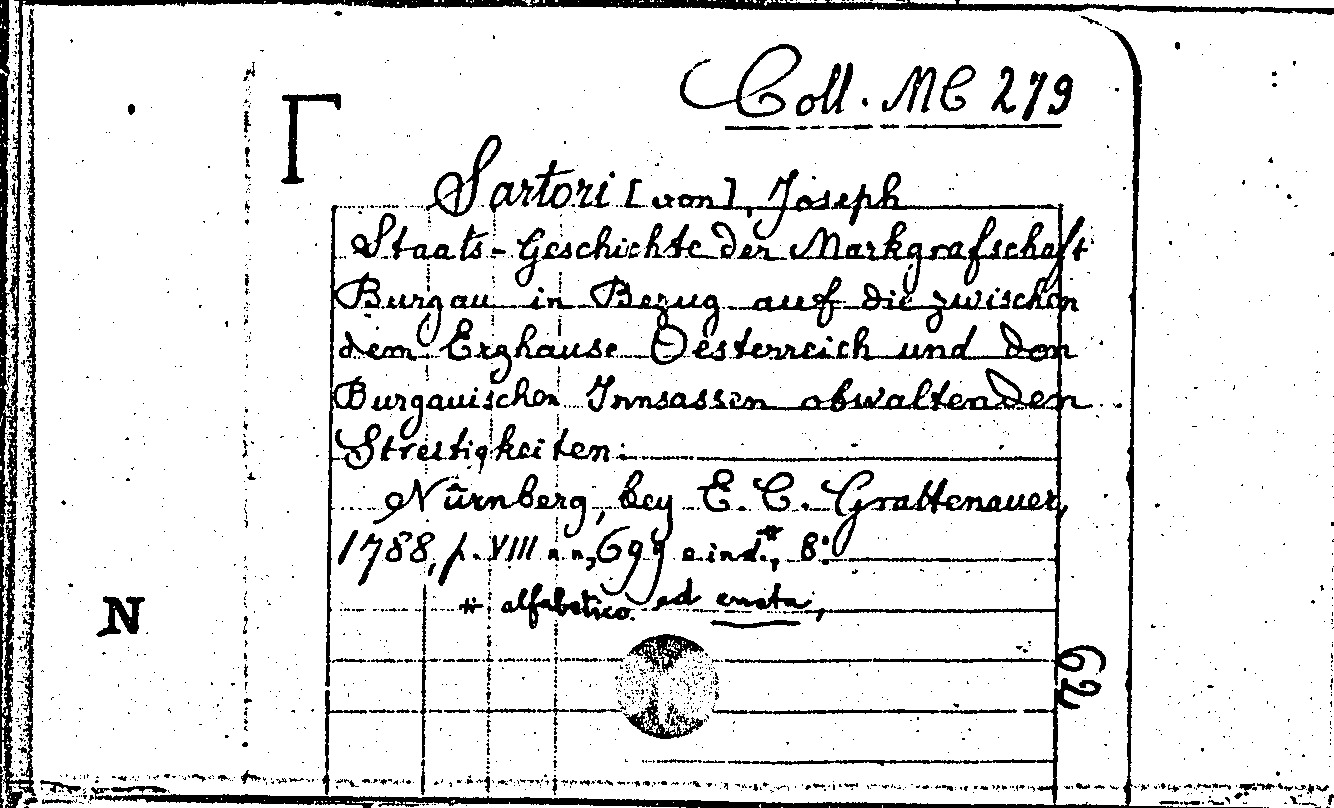 Coll. MC 279
Sartori [von], Joseph
Staats-Geschichte der Markgrafschaft
Burgau in Bezug auf die zwischen
dem Erzhause Oesterreich und den
Burgauischen Innsassen obwaltenden
Streitigkeiten:
Nürnberg, bey E. C. Grattenauer,
1788, p. VIII n.n., 699 e ind.*, 8º.
* alfabetico ed errata,
N
62